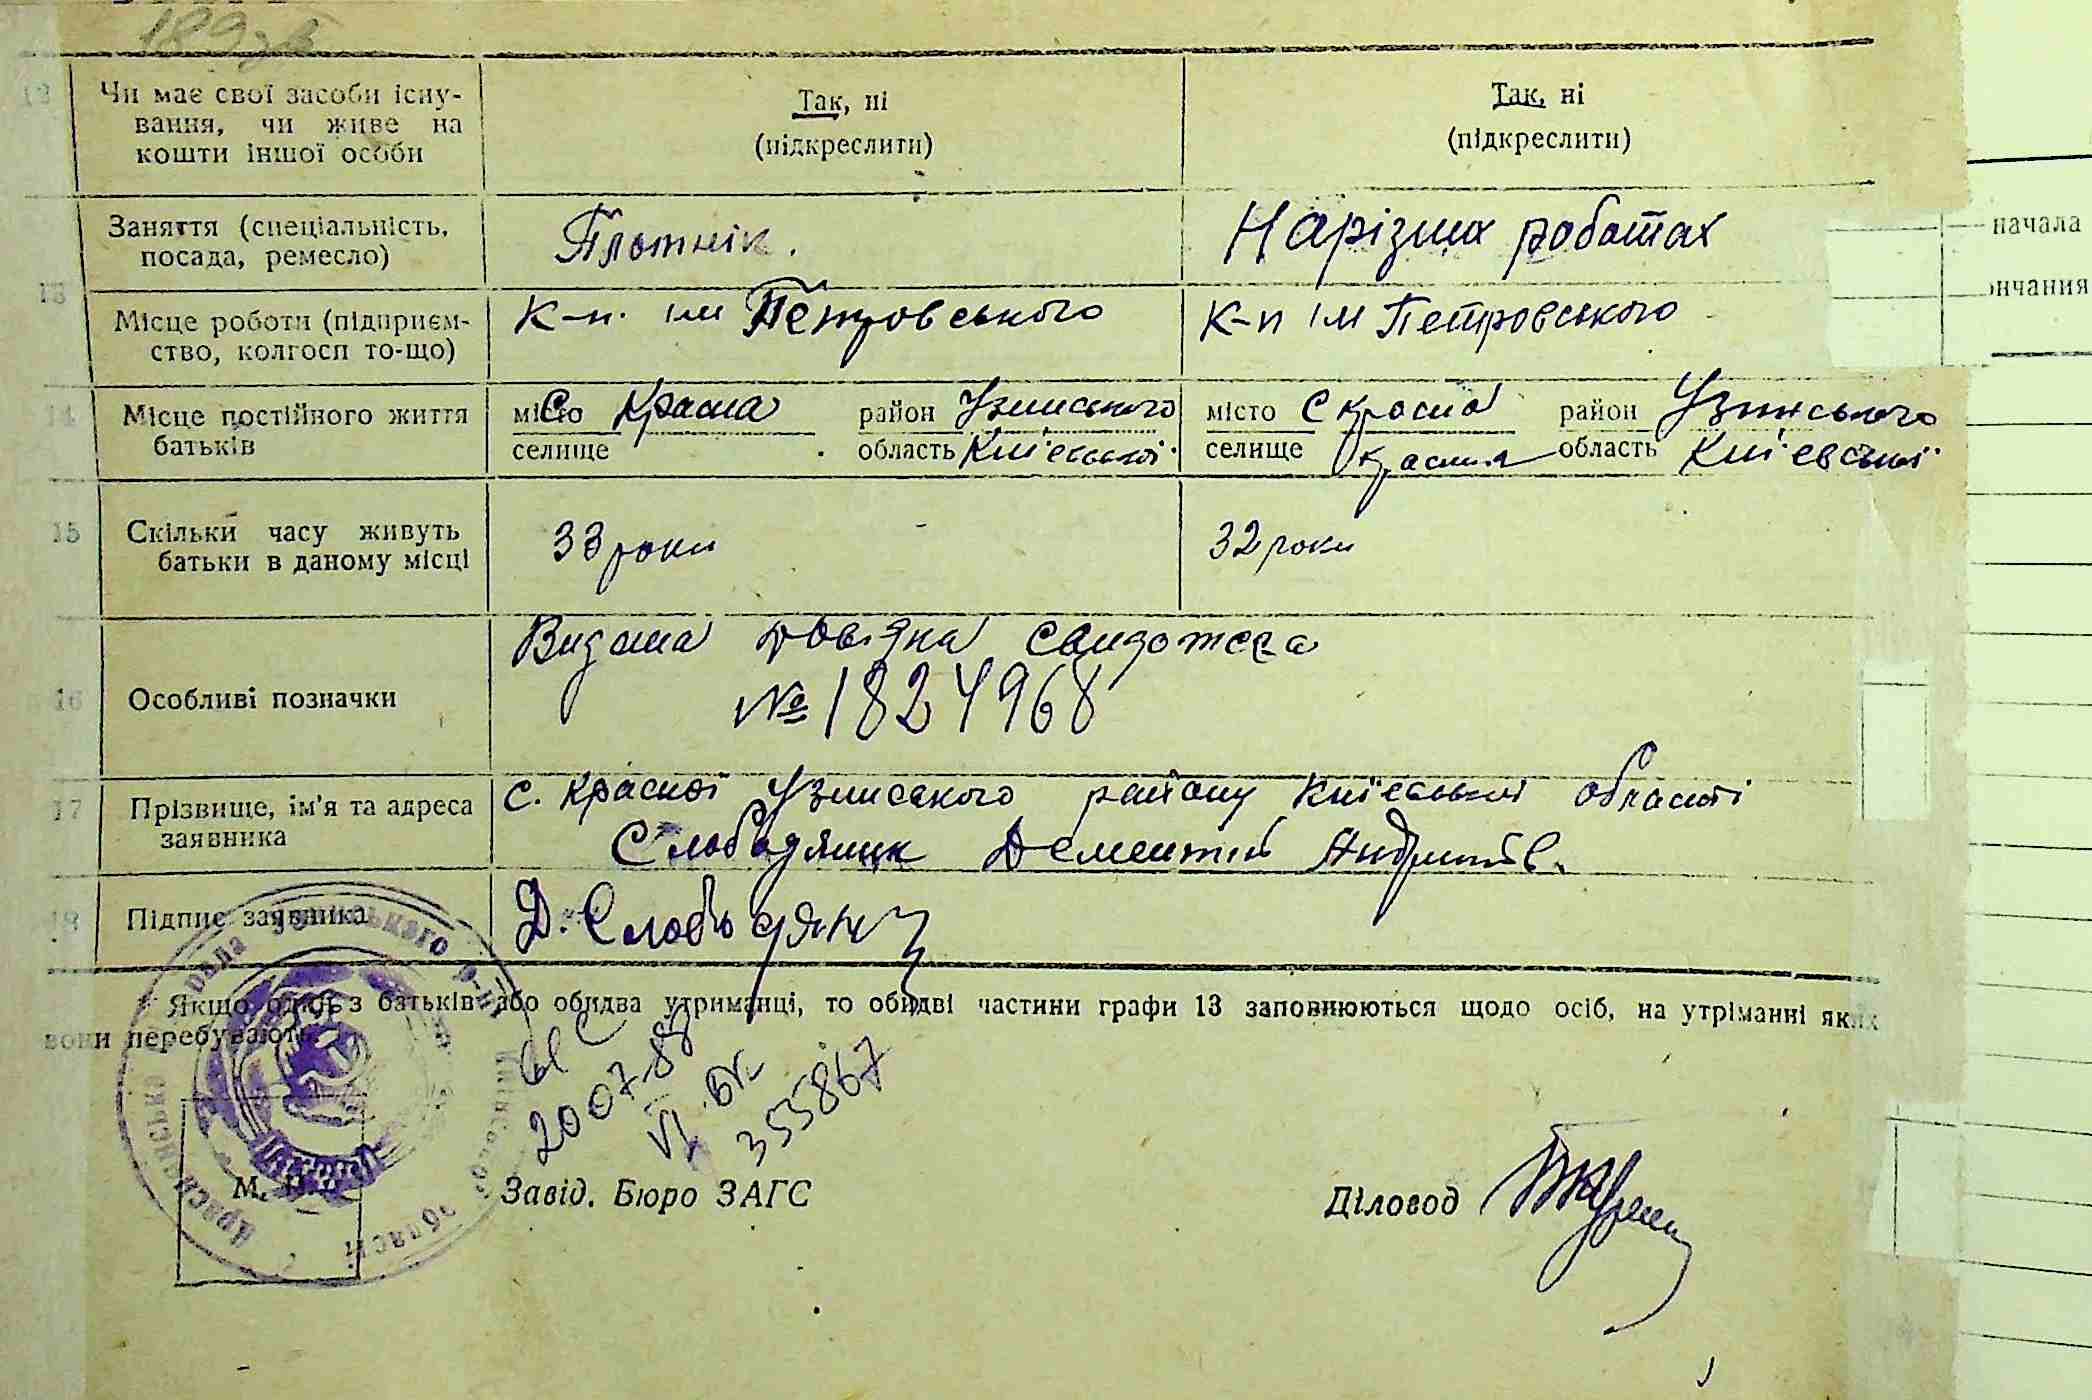 189зв
12 Чи має свої засоби існу-
вання, чи живе на
кошти іншої особи
Так, ні
(підкреслити)
Так, ні
(підкреслити)
13
Заняття (спеціальність,
посада, ремесло)
Плотнік.
На різних роботах
Місце роботи (підприєм-
ство, колгосп то-що)
к-п. ім Петровського
к-п ім Петровського
14 Місце постійного життя
батьків
місто с Красна район Узинського
селище область Київської
місто с Красна район Узинського
селище область Київської
15 Скільки часу живуть
батьки в даному місці
33 роки
32 роки
16 Особливі позначки
Видана
№ 1824968
17 Прізвище, ім'я та адреса
заявника
с. Красної Узинського району Київської області
Слободяник Дементій
18 Підпис заявника
Д. Слободяник
Якщо один з батьків або обидва утриманці, то обидві частини графи 13 заповнюються щодо осіб, на утриманні яких
вони перебувають.
200788
VI БК
355867
М. П.
Завід. Бюро ЗАГС
Діловод
начала
ончания